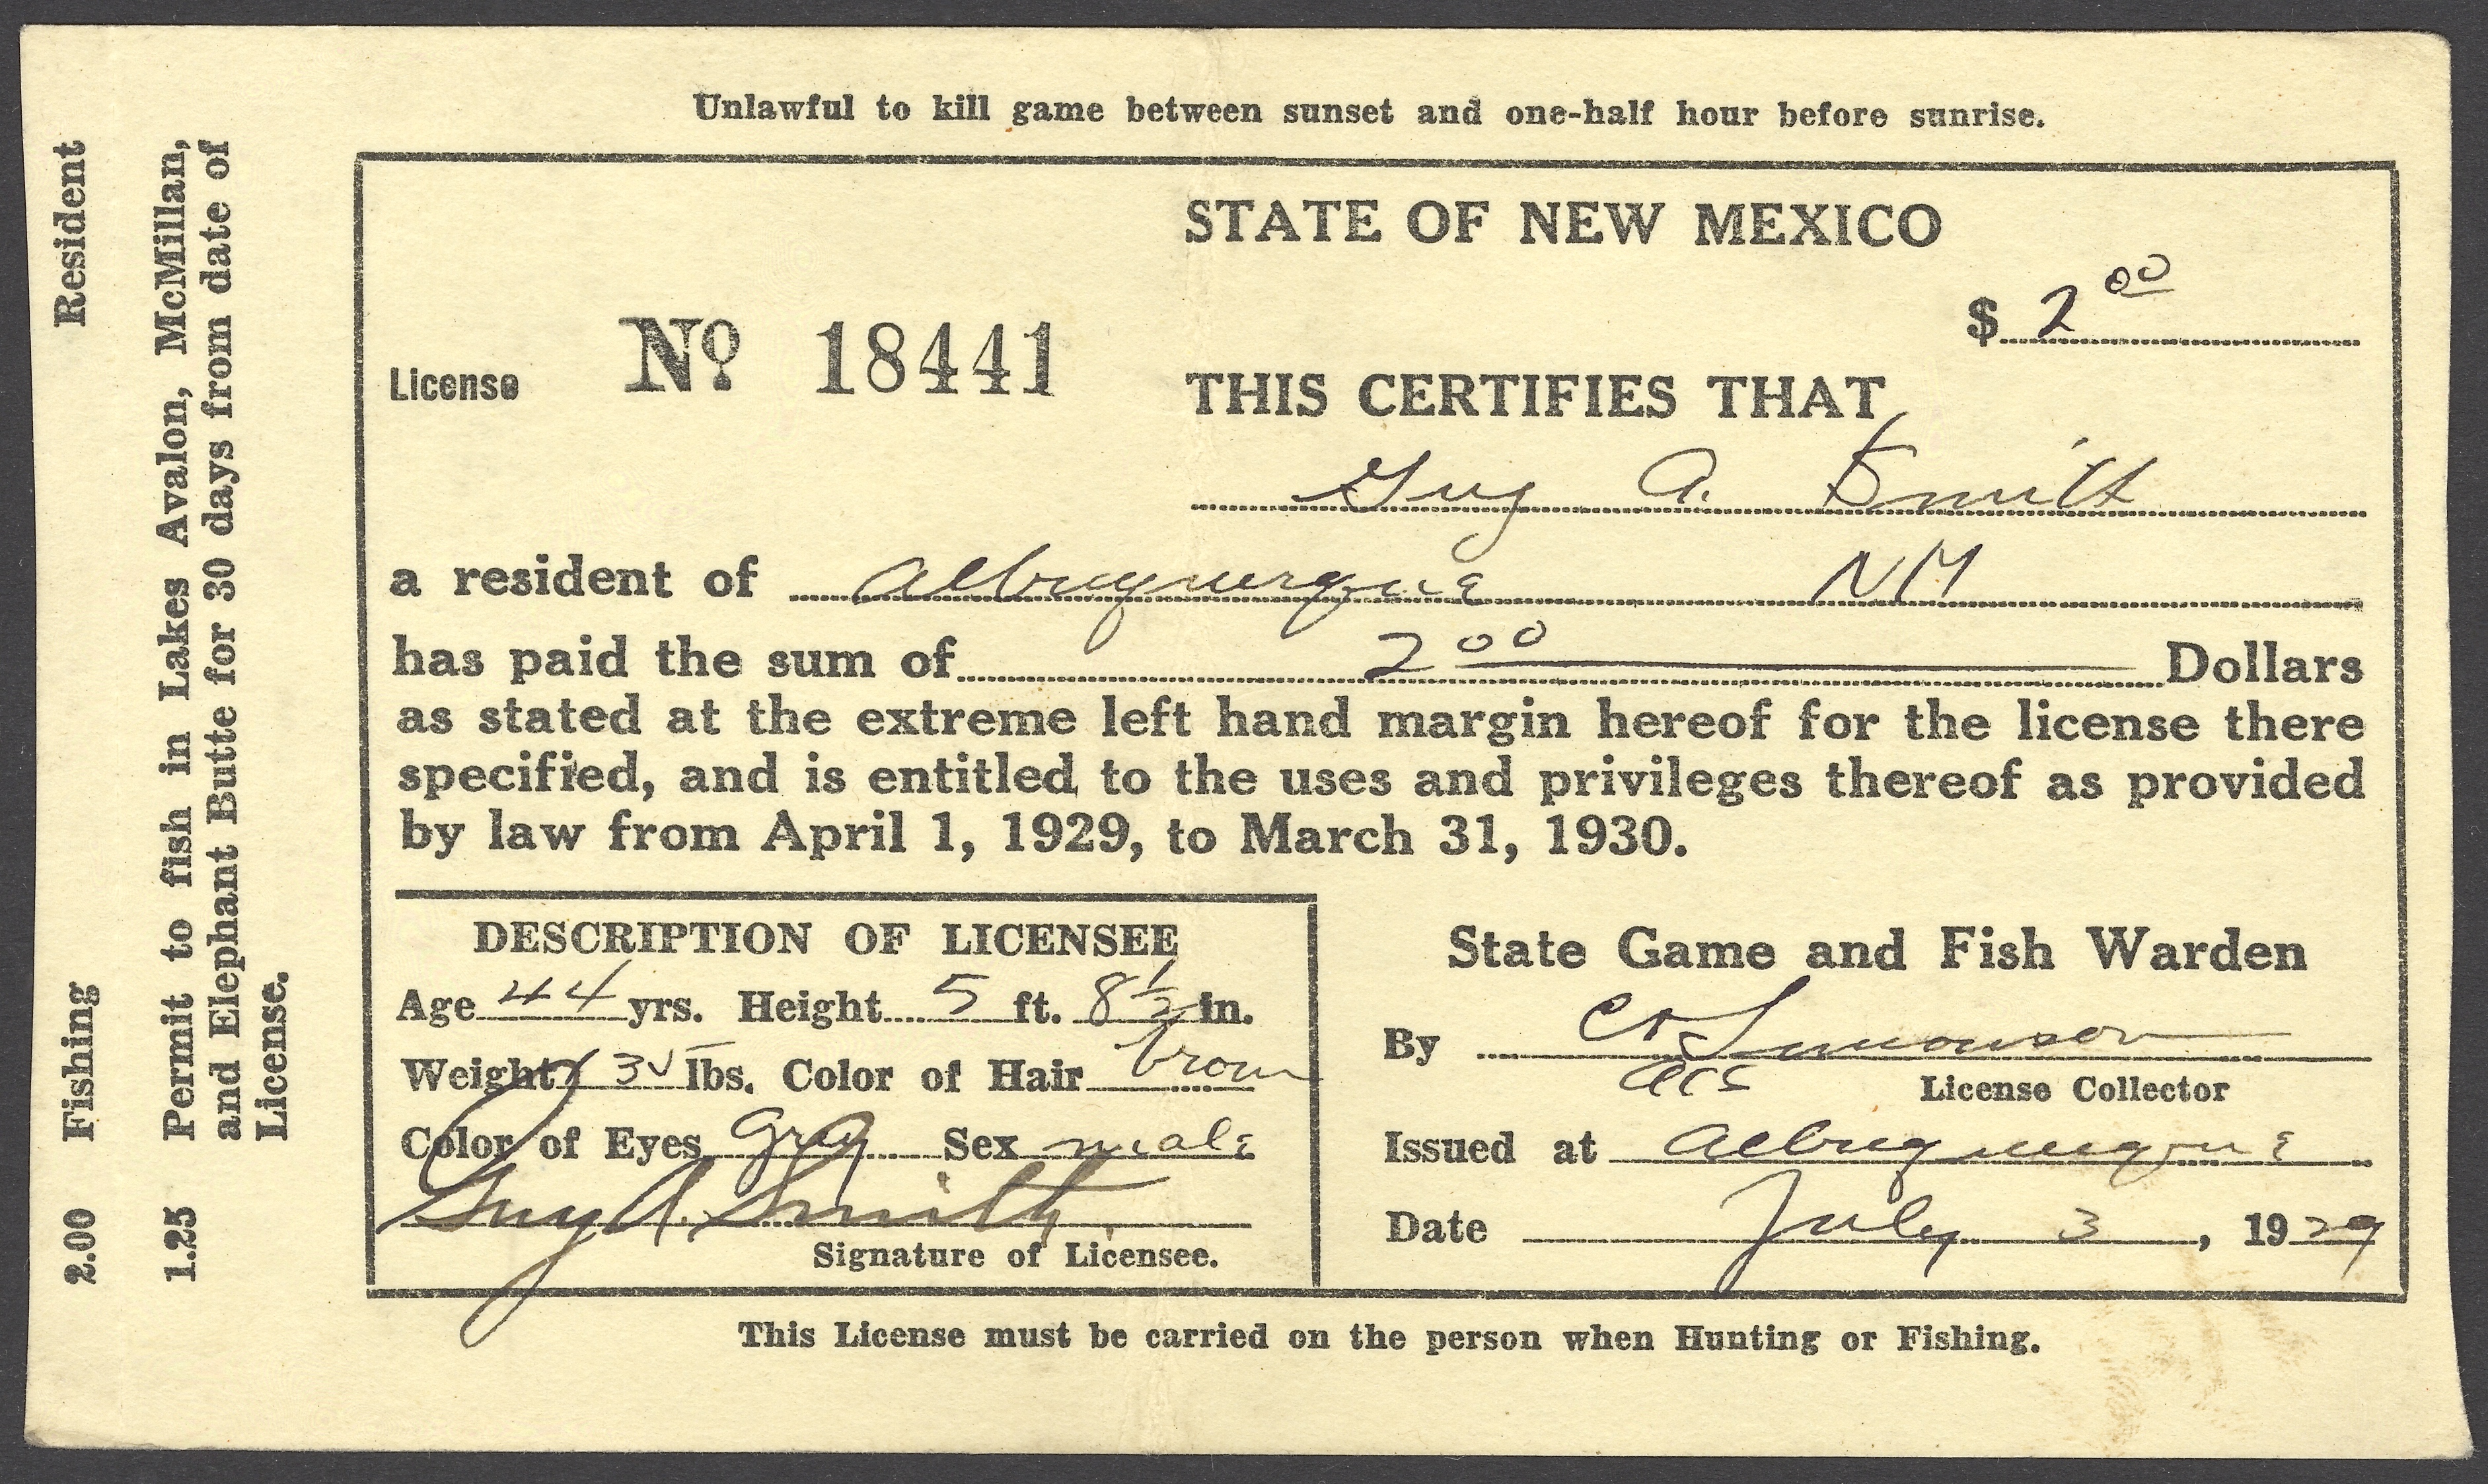 Unlawful to kill game between sunset and one-half hour before sunrise.
Resident
Fishing
2.00
Permit to fish in Lakes Avalon, McMillan,
and Elephant Butte for 30 days from date of
License.
1.25
STATE OF NEW MEXICO
$ 2 00
License No 18441
THIS CERTIFIES THAT
Guy A. Smith
a resident of Albuquerque NM
has paid the sum of 2 00 Dollars
as stated at the extreme left hand margin hereof for the license there
specified, and is entitled to the uses and privileges thereof as provided
by law from April 1, 1929, to March 31, 1930.
DESCRIPTION OF LICENSEE
Age 44 yrs. Height 5 ft. 8 1/2 in.
Weight 135 lbs. Color of Hair brown
Color of Eyes gray Sex male
Guy A. Smith
Signature of Licensee.
State Game and Fish Warden
By Simonson
License Collector
Issued at Albuquerque
Date July 3, 1929
This License must be carried on the person when Hunting or Fishing.